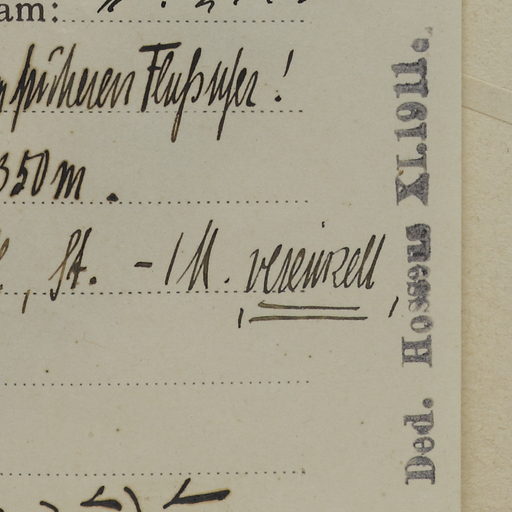 am:
früheren Flußufer!
350 m.
, St. - 1 M. vereinzelt,
Ded. Hosseus XI.1911.